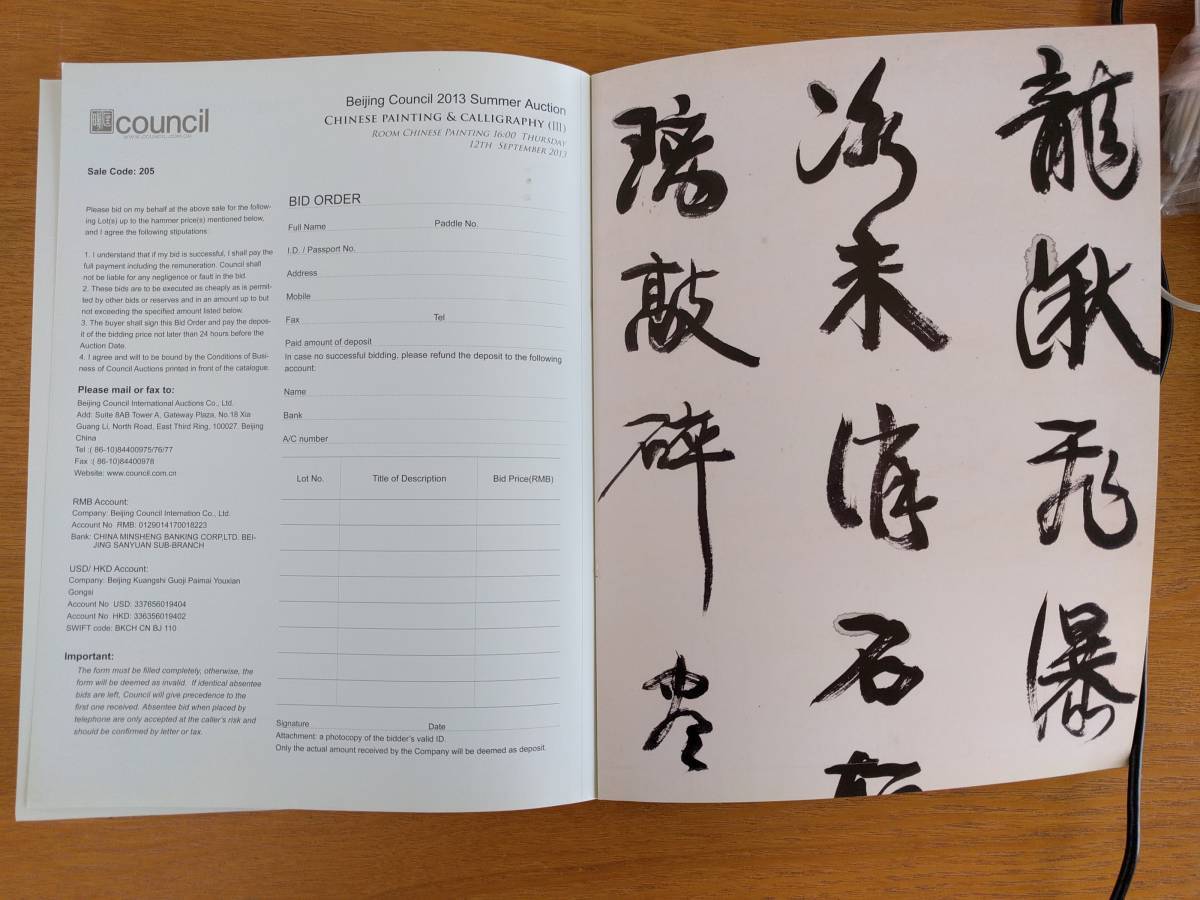 council
WWW.COUNCIL.COM.CN
Beijing Council 2013 Summer Auction
CHINESE PAINTING & CALLIGRAPHY (III)
ROOM CHINESE PAINTING 16:00 THURSDAY
12TH SEPTEMBER 2013
Sale Code: 205
Please bid on my behalf at the above sale for the follow-
ing Lot(s) up to the hammer price(s) mentioned below,
and I agree the following stipulations:
1. I understand that if my bid is successful, I shall pay the
full payment including the remuneration. Council shall
not be liable for any negligence or fault in the bid.
2. These bids are to be executed as cheaply as is permit-
ted by other bids or reserves and in an amount up to but
not exceeding the specified amount listed below.
3. The buyer shall sign this Bid Order and pay the depos-
it of the bidding price not later than 24 hours before the
Auction Date.
4. I agree and will to be bound by the Conditions of Busi-
ness of Council Auctions printed in front of the catalogue.
Please mail or fax to:
Beijing Council International Auctions Co., Ltd.
Add: Suite 8AB Tower A, Gateway Plaza, No.18 Xia
Guang Li, North Road, East Third Ring, 100027. Beijing
China
Tel :( 86-10)84400975/76/77
Fax :( 86-10)84400978
Website: www.council.com.cn
RMB Account:
Company: Beijing Council Internation Co., Ltd.
Account No RMB: 0129014170018223
Bank: CHINA MINSHENG BANKING CORP,LTD. BEI-
JING SANYUAN SUB-BRANCH
USD/ HKD Account:
Company: Beijing Kuangshi Guoji Paimai Youxian
Gongsi
Account No USD: 337656019404
Account No HKD: 336356019402
SWIFT code: BKCH CN BJ 110
Important:
The form must be filled completely, otherwise, the
form will be deemed as invalid. If identical absentee
bids are left, Council will give precedence to the
first one received. Absentee bid when placed by
telephone are only accepted at the caller's risk and
should be confirmed by letter or fax.
BID ORDER
Full Name Paddle No.
I.D. / Passport No.
Address
Mobile
Fax Tel
Paid amount of deposit
In case no successful bidding, please refund the deposit to the following
account:
Name
Bank
A/C number
Lot No. Title of Description Bid Price(RMB)
Signature Date
Attachment: a photocopy of the bidder's valid ID.
Only the actual amount received by the Company will be deemed as deposit.
龍湫飛瀑
冰未消石
璃敲碎